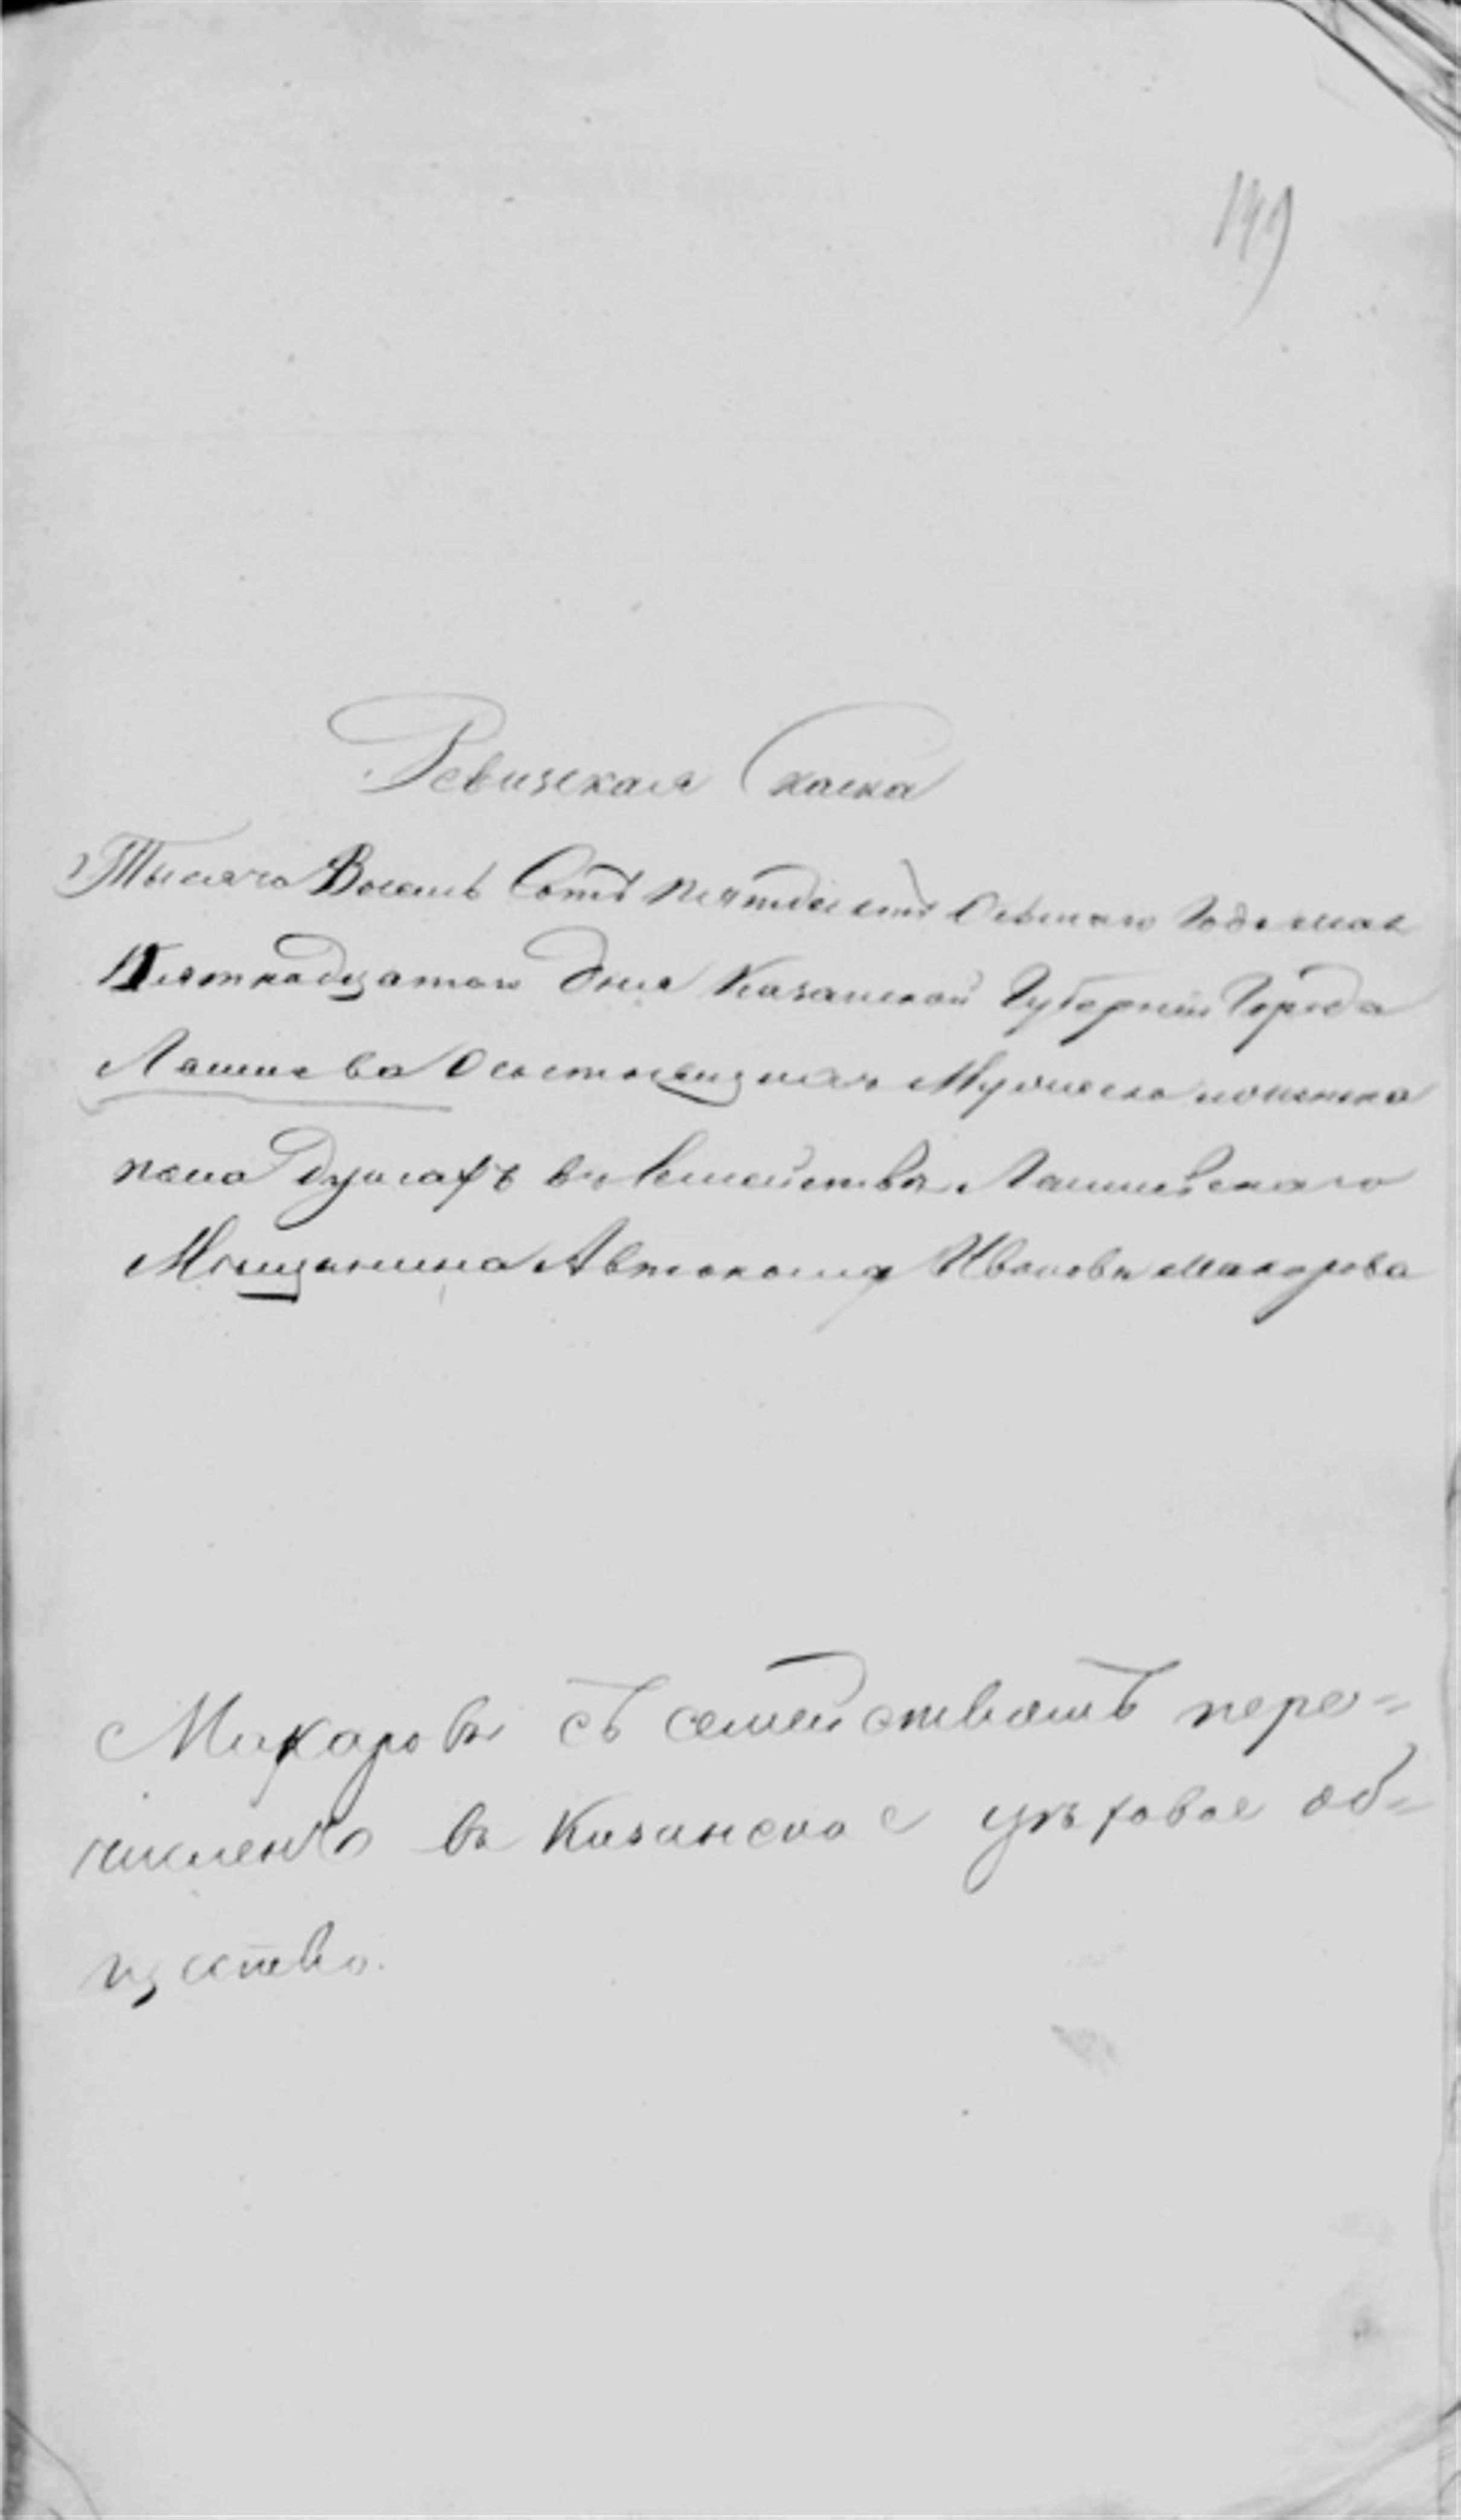 149
Ревизская Скаска
Тысяча Восемь Сотъ пятдесятъ Осьмаго Года мая
Пятнадцатаго дня Казанской Губернии Города
Лаишева О состоящихъ Мужеска и женска
пола душахъ въ Семействе Лаишевскаго
Мещанина Автонома Иванова Макарова
Макаровъ съ семействомъ пере=
численъ въ Казанское цеховое об=
щество.